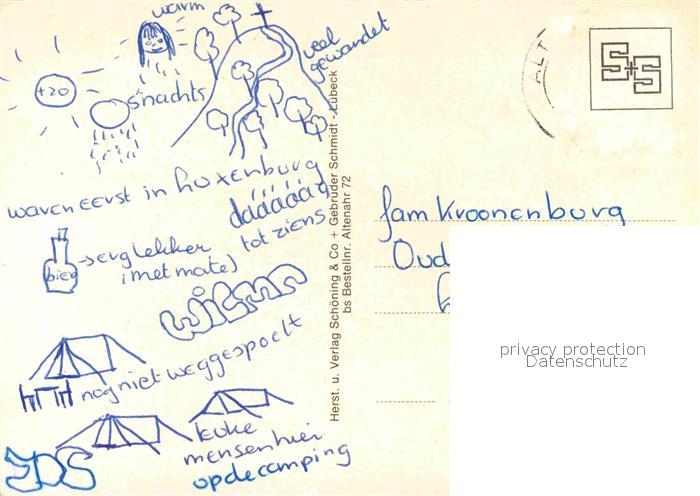 warm
+20
's nachts
veel
gewandelt
waren eerst in Luxenburg
dáááááág
tot ziens
bier → erg lekker
(met mate)
Wilma
nog niet weggespoelt
leuke
mensen hier
op de camping
JDS
Herst. u. Verlag Schöning & Co + Gebrüder Schmidt - Lübeck
bs Bestellnr. Altenahr 72
ALT
S+S
fam Kroonenburg
Oud
privacy protection
Datenschutz